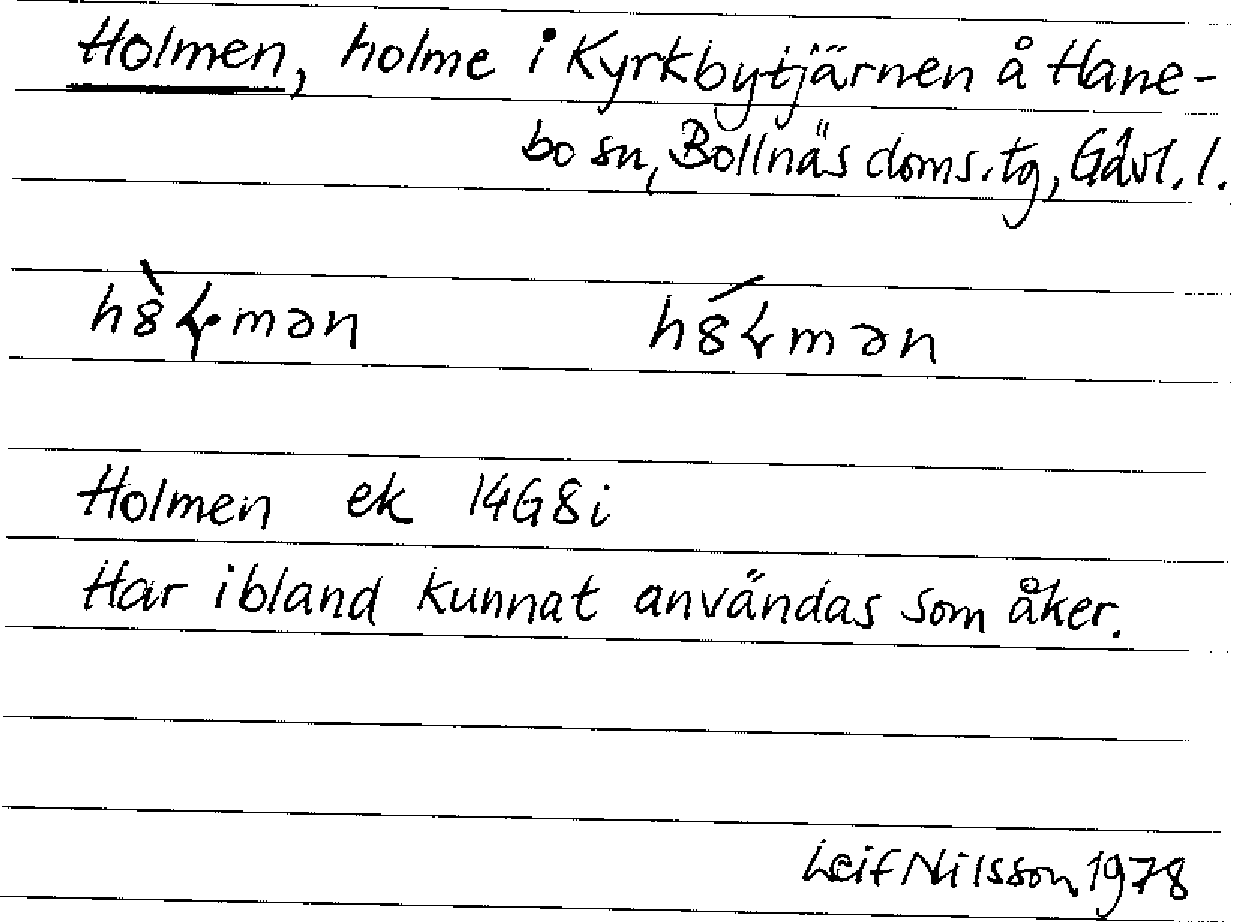 Holmen, holme i Kyrkbytjärnen å Hane-
bo sn, Bollnäs doms.tg, Gävl. l.
Holmen ek 14G8i
Har ibland kunnat användas som åker.
Leif Nilsson 1978